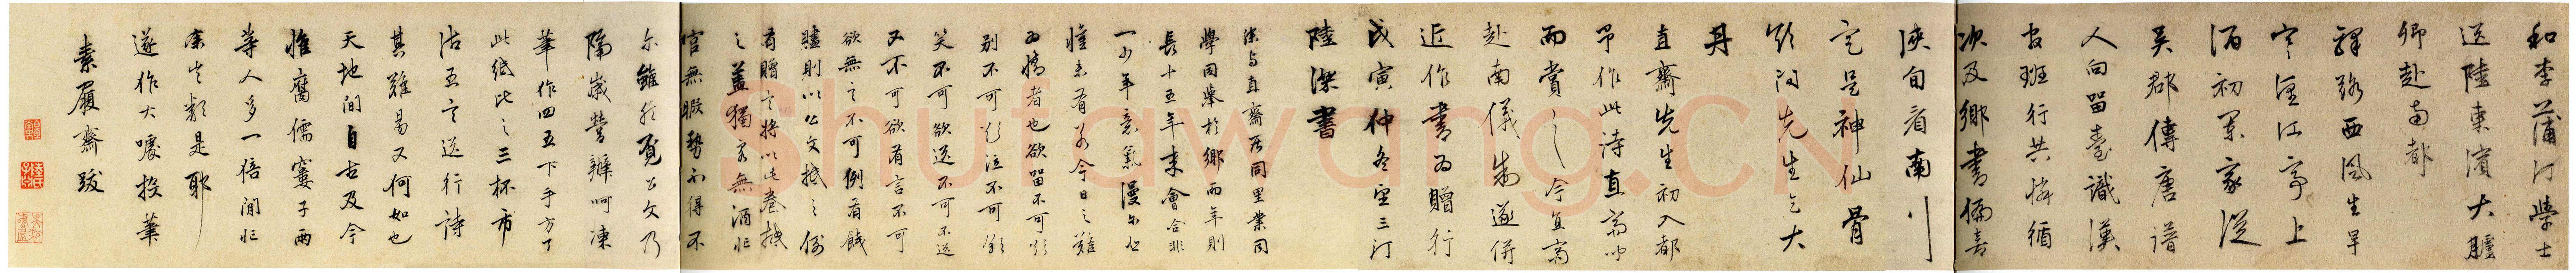 和李蒲汀學士
送陸東濱大
卿赴南都
驛路西風生早
寒江亭上
酒初闌家從
吳郡傳唐譜
人向留臺識漢
官班行共惜循
次及鄉書倘喜
浹旬看南川
定是神仙骨
欲問先生乞大
丹
直齋先生初入都
予作此詩直齋
而賞之今直齋
赴南儀制遂併
近作書為贈行
戊寅仲冬望三汀
陸深書
深與直齋居同里業同
學同舉於鄉而年則
長十五年來會合非
一少年意氣漫不
惟未有如今日之難
為情者也欲留不可
別不可欲泣不可欲
笑不可欲送不可不送
又不可欲有言不可
欲無言不可例有餞
贐則以公文抵之例
有贈言將以此卷抵
之蓋獨客無酒
官無暇勢不得不
爾雖然覓公文乃
隔歲營辦呵凍
筆作四五下手方了
此紙比之三杯市
沽五言送行詩
其難易又何如也
天地間自古及今
惟腐儒窶子兩
等人多一倍閒忙
余豈類是耶
遂作大噱投筆
素履齋跋
Shufawang.CN